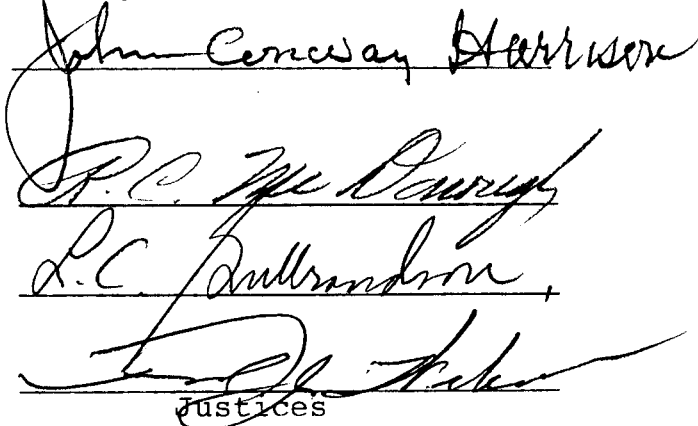 John Conway Harrison
R. C. McDonough
L.C. Gulbrandson,
Justices